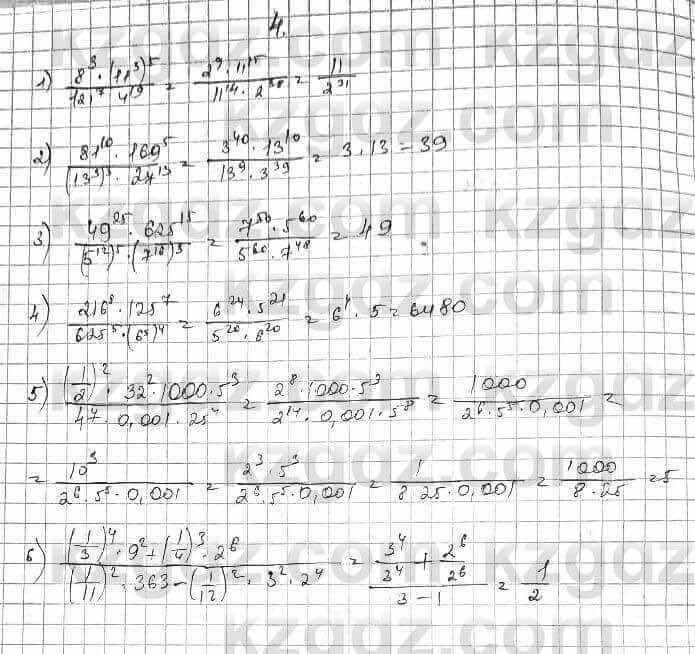 4.
1) \frac{8^3 \cdot (11^3)^5}{121^7 \cdot 4^{19}} = \frac{2^9 \cdot 11^{15}}{11^{14} \cdot 2^{38}} = \frac{11}{2^{31}}
2) \frac{81^{10} \cdot 169^5}{(13^3)^3 \cdot 27^{13}} = \frac{3^{40} \cdot 13^{10}}{13^9 \cdot 3^{39}} = 3 \cdot 13 = 39
3) \frac{49^{25} \cdot 625^{15}}{(5^{12})^5 \cdot (7^{16})^3} = \frac{7^{50} \cdot 5^{60}}{5^{60} \cdot 7^{48}} = 49
4) \frac{216^8 \cdot 125^7}{625^5 \cdot (6^5)^4} = \frac{6^{24} \cdot 5^{21}}{5^{20} \cdot 6^{20}} = 6^4 \cdot 5 = 6480
5) \frac{(\frac{1}{2})^2 \cdot 32^2 \cdot 1000 \cdot 5^3}{4^7 \cdot 0,001 \cdot 25^4} = \frac{2^8 \cdot 1000 \cdot 5^3}{2^{14} \cdot 0,001 \cdot 5^8} = \frac{1000}{2^6 \cdot 5^5 \cdot 0,001} =
= \frac{10^3}{2^6 \cdot 5^5 \cdot 0,001} = \frac{2^3 \cdot 5^3}{2^6 \cdot 5^5 \cdot 0,001} = \frac{1}{8 \cdot 25 \cdot 0,001} = \frac{1000}{8 \cdot 25} = 5
6) \frac{(\frac{1}{3})^4 \cdot 9^2 + (\frac{1}{4})^3 \cdot 2^6}{(\frac{1}{11})^2 \cdot 363 - (\frac{1}{12})^2 \cdot 3^2 \cdot 2^4} = \frac{\frac{3^4}{3^4} + \frac{2^6}{2^6}}{3 - 1} = \frac{1}{2}